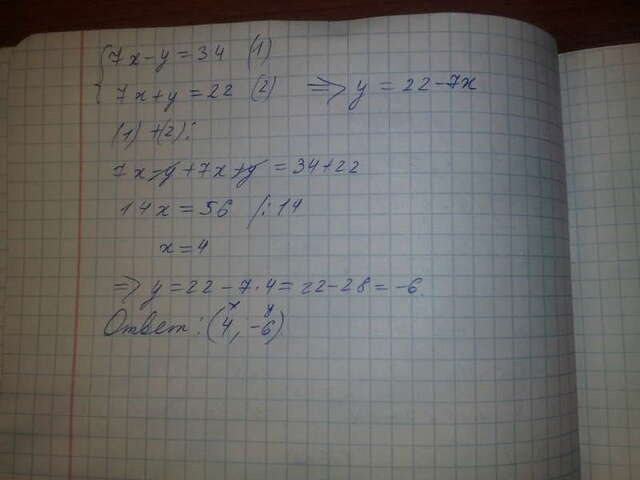 {7x-y=34 (1)
7x+y=22 (2) => y = 22-7x
(1)+(2):
7x-y+7x+y=34+22
14x=56 /:14
x=4
=> y=22-7·4=22-28=-6.
x y
Ответ: (4, -6).